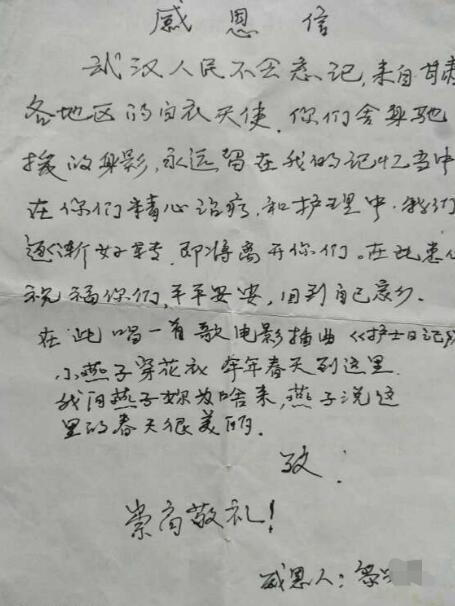 感恩信
武汉人民不会忘记,来自甘肃
各地区的白衣天使.你们舍身驰
援的身影,永远留在我的记忆当中
在你们精心治疗,和护理中,我们
逐渐好转,即将离开你们。在此患
祝福你们,平平安安,回到自己家乡.
在此唱一首歌电影插曲《护士日记》
小燕子穿花衣 年年春天到这里.
我问燕子妳为啥来,燕子说这
里的春天很美丽.
致:
崇高敬礼!
感恩人: